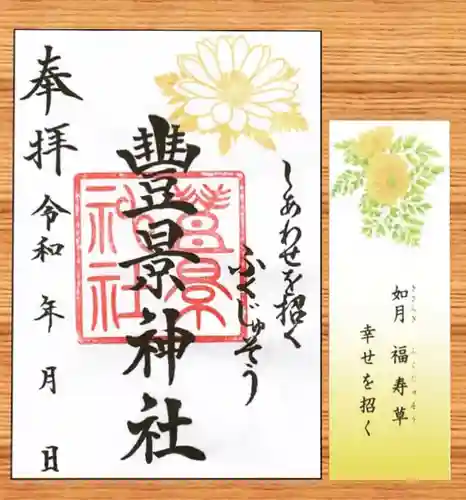 奉拝
令和 年 月 日
豐景神社
豐景
神社
しあわせを招く
ふくじゅそう
如月 福寿草
きさらぎ ふくじゅそう
幸せを招く